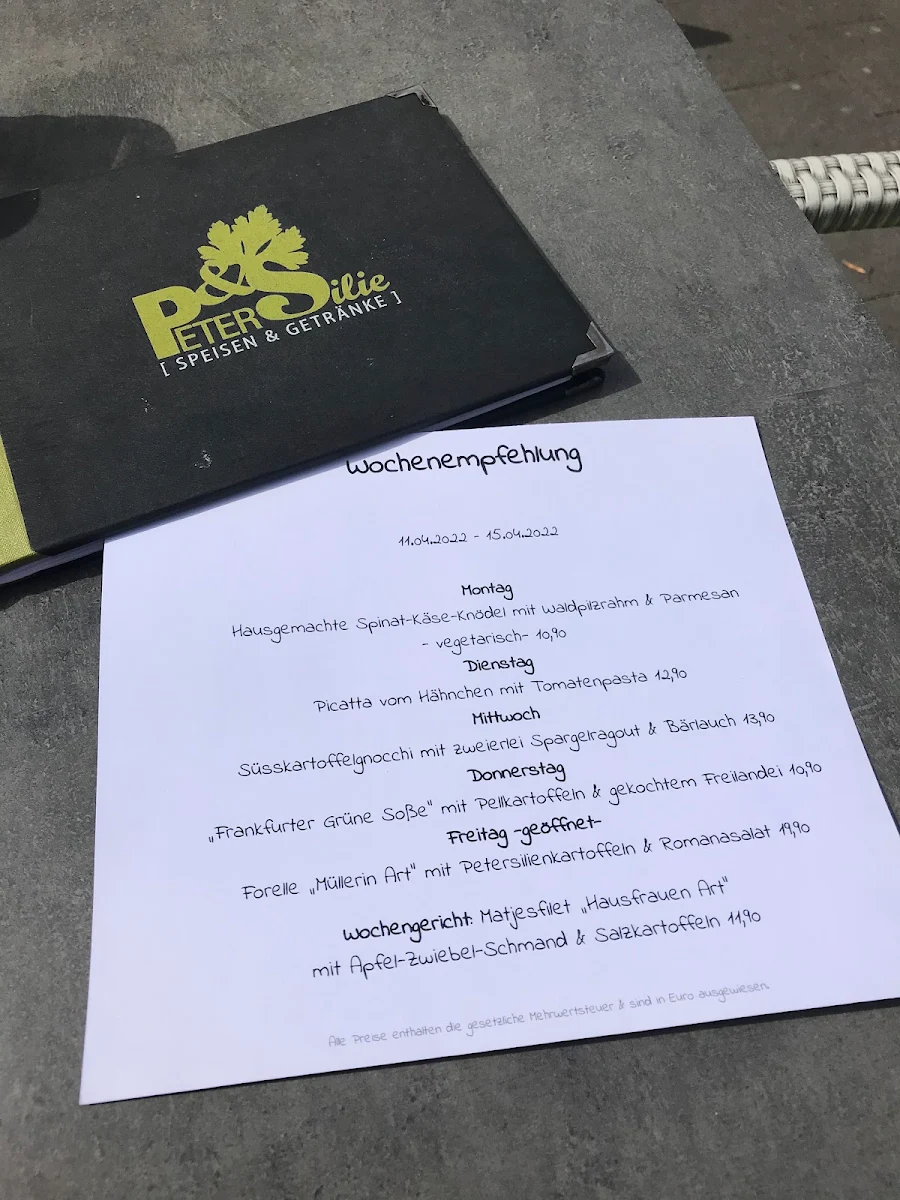 P&Silie
PETER
[ SPEISEN & GETRÄNKE ]
Wochenempfehlung
11.04.2022 - 15.04.2022
Montag
Hausgemachte Spinat-Käse-Knödel mit Waldpilzrahm & Parmesan
- vegetarisch- 10,90
Dienstag
Picatta vom Hähnchen mit Tomatenpasta 12,90
Mittwoch
Süsskartoffelgnocchi mit zweierlei Spargelragout & Bärlauch 13,90
Donnerstag
„Frankfurter Grüne Soße" mit Pellkartoffeln & gekochtem Freilandei 10,90
Freitag -geöffnet-
Forelle „Müllerin Art" mit Petersilienkartoffeln & Romanasalat 19,90
Wochengericht: Matjesfilet „Hausfrauen Art"
mit Apfel-Zwiebel-Schmand & Salzkartoffeln 11,90
Alle Preise enthalten die gesetzliche Mehrwertsteuer & sind in Euro ausgewiesen.